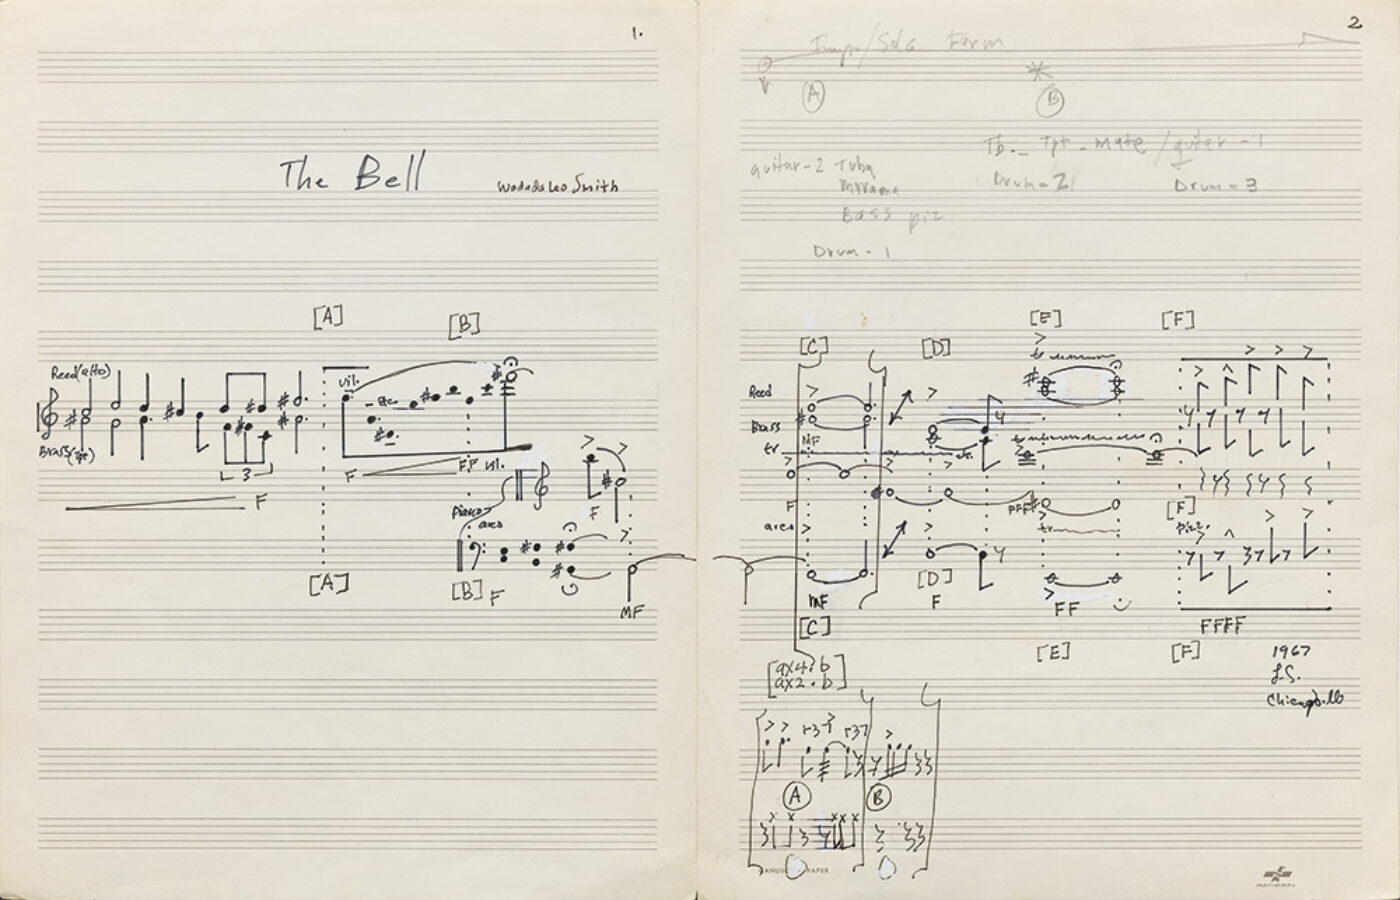 1.
The Bell
Wadada Leo Smith
[A]
[B]
Reed(alto)
vil.
Brass(tpt)
3
F
F
FF vil.
piano
arco
F
[A]
[B] F
MF
2
Form
A
B
Tb. - Tpt - mute / guitar - 1
guitar - 2 Tuba
Drum - 2
Drum - 3
Bass piz
Drum - 1
[C]
[D]
[E]
[F]
Reed
Brass
tr
MF
F
FFF
[F]
arco
tr
pizz.
[D]
MF
F
FF
[C]
FFFF
[E]
[F]
1967
L.S.
[ax4. b
ax2. b]
3
3
A
B
MANUSCRIPT PAPER
NATIONAL